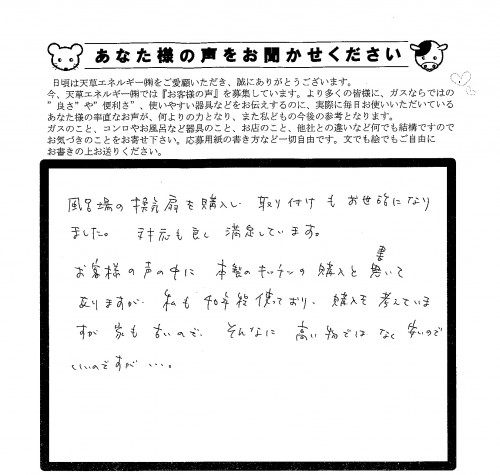 あなた様の声をお聞かせください
日頃は天草エネルギー㈱をご愛顧いただき、誠にありがとうございます。
今、天草エネルギー㈱では『お客様の声』を募集しています。より多くの皆様に、ガスならではの
”良さ”や”便利さ”、使いやすい器具などをお伝えするのに、実際に毎日お使いいただいている
あなた様の率直なお声が、何よりの力となり、また私どもの今後の参考となります。
ガスのこと、コンロやお風呂など器具のこと、お店のこと、他社との違いなど何でも結構ですので
お気づきのことをお寄せ下さい。応募用紙の書き方など一切自由です。文でも絵でもご自由に
お書きの上お送りください。
風呂場の換気扇を購入し 取り付けもお世話になり
ました。 対応も良し 満足しています。
お客様の声の中に 本整のキッチンの購入と書いて
ありますが、私も40年程使っており、購入を考えていま
すが 家も古いので、そんなに 高い物では なく 安いので
いいのですが…。